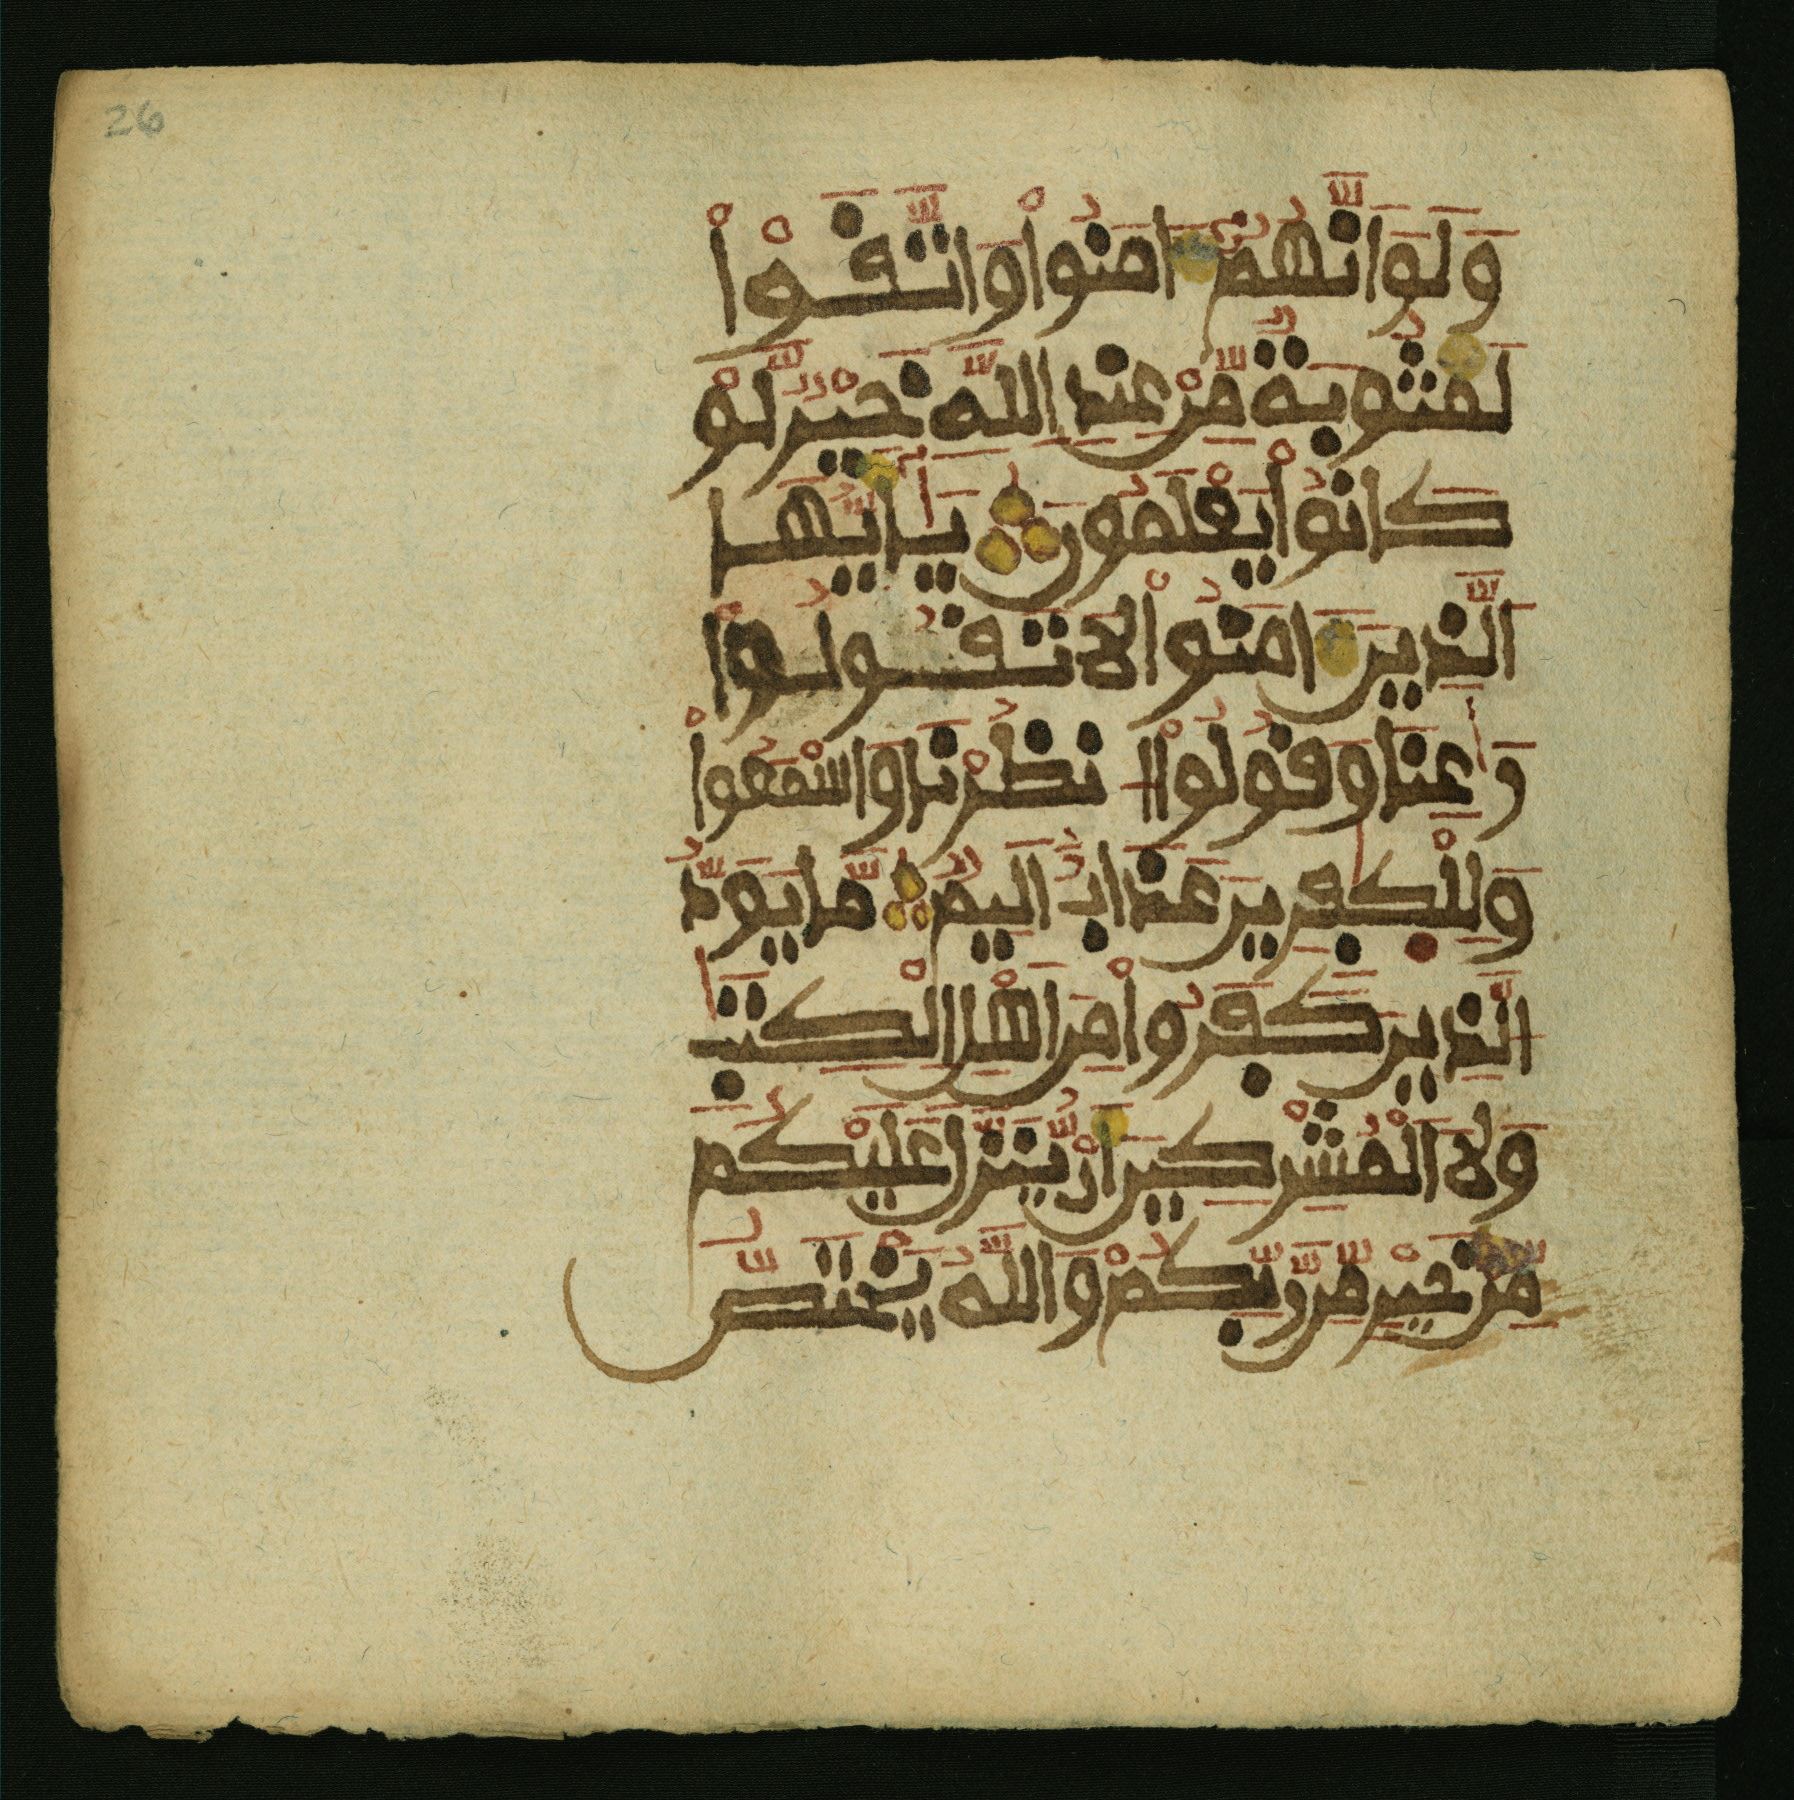 26
وَلَوَانَّهُمُ ءامَنُواْ وَاتَّقَوْاْ
لَمَثُوبَةٌ مِّنْ عِندِ اللَّهِ خَيْرٌ لَّوْ
كَانُواْ يَعْلَمُونَ يَـٰأَيُّهَا
الَّذِينَ ءامَنُواْ لَا تَقُولُواْ
رَٰعِنَا وَقُولُواْ انظُرْنَا وَاسْمَعُواْ
وَلِلْكَٰفِرِينَ عَذَابٌ اَلِيمٌ مَّا يَوَدُّ
الَّذِينَ كَفَرُواْ مِنَ اهْلِ الْكِتَٰبِ
وَلَا الْمُشْرِكِينَ أَنْ يُّنَزَّلَ عَلَيْكُم
مِّنْ خَيْرٍ مِّن رَّبِّكُمْ وَاللَّهُ يَخْتَصُّ